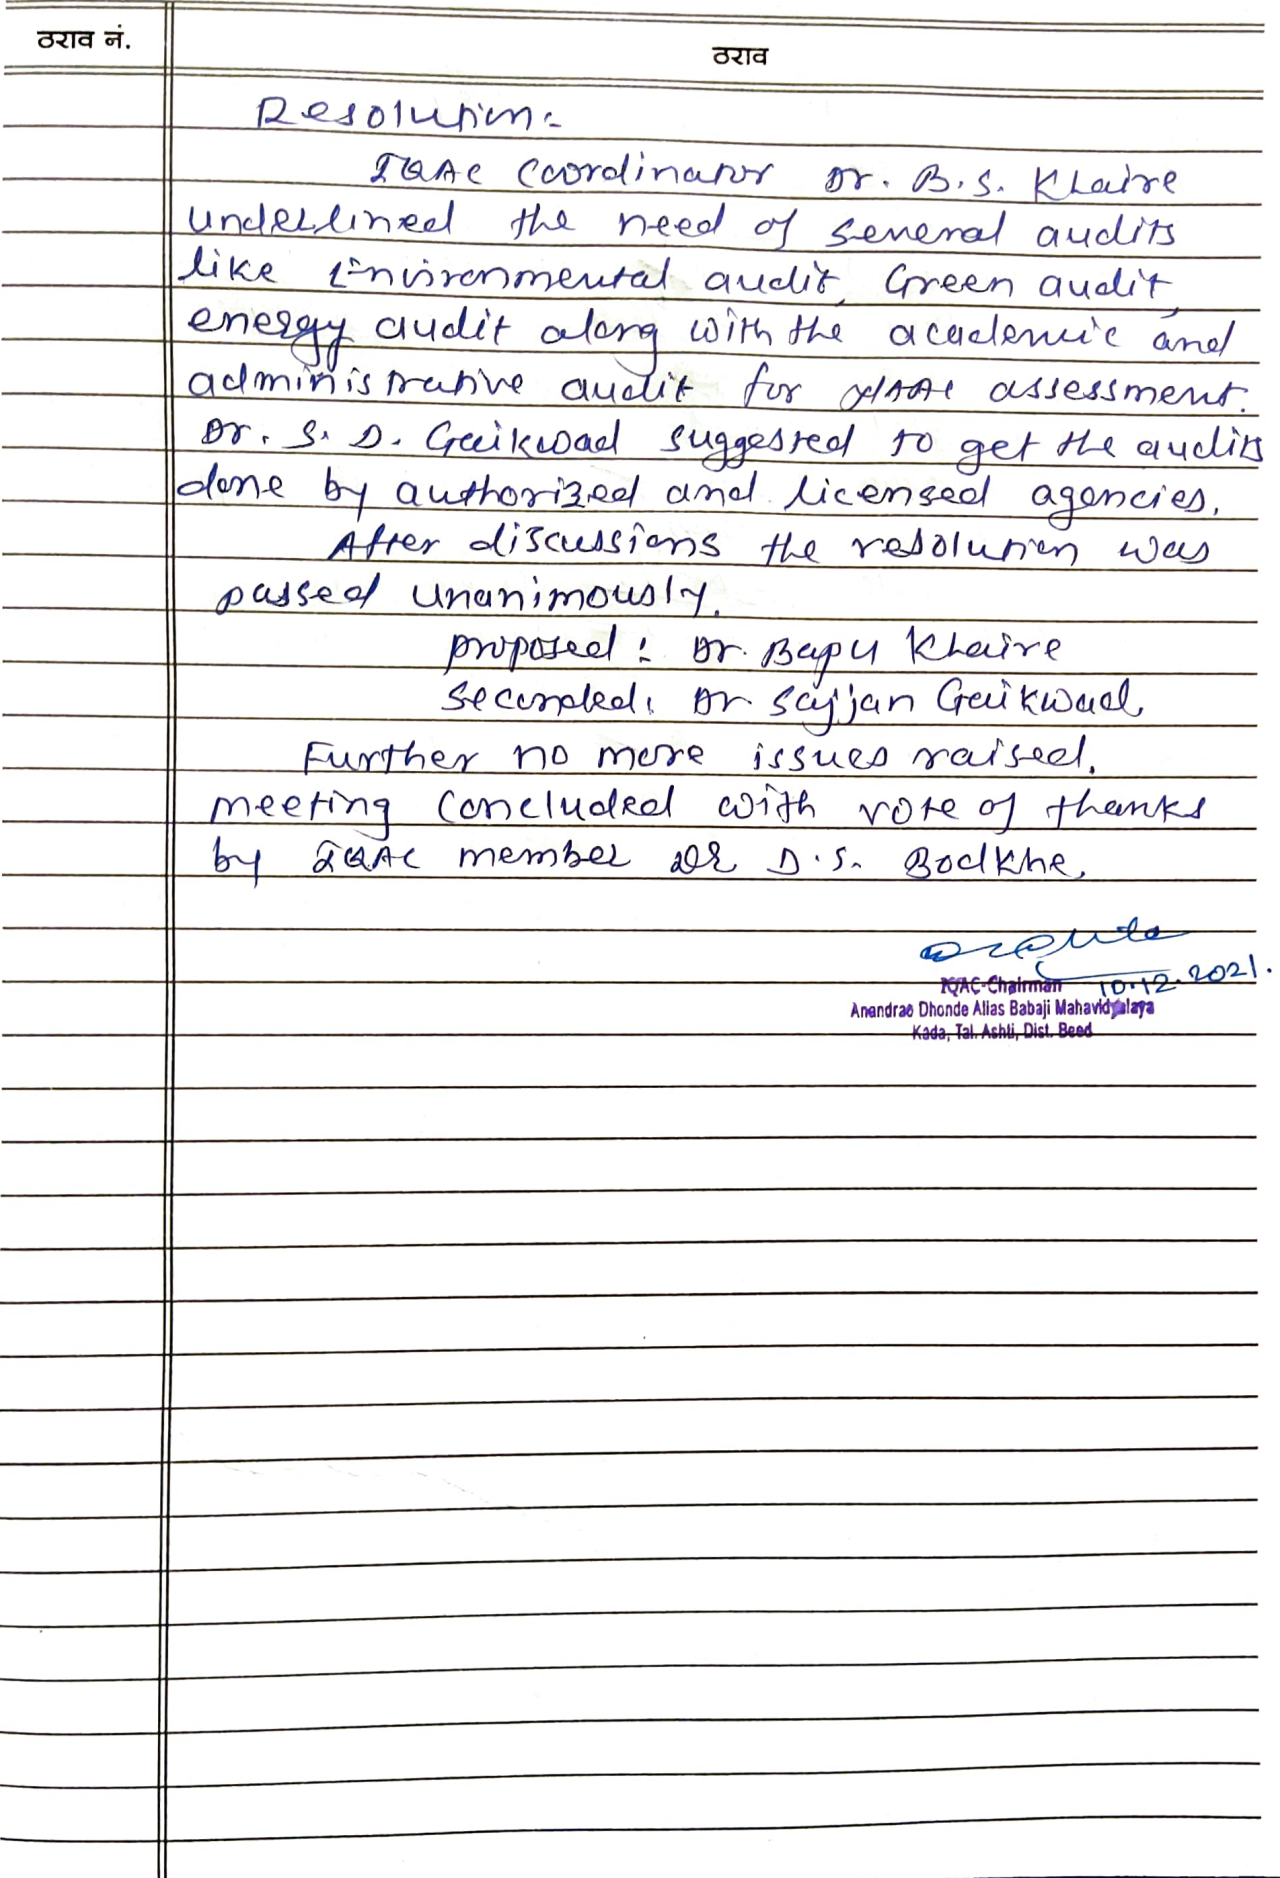 ठराव नं.
ठराव
Resolution:-
IQAC Coordinator Dr. B.S. Khaire
underlined the need of several audits
like Environmental audit, Green audit,
energy audit along with the academic and
administrative audit for NAAC assessment.
Dr. S. D. Gaikwad suggested to get the audits
done by authorized and licensed agencies.
After discussions the resolution was
passed unanimously.
Proposed : Dr. Bapu Khaire
Seconded: Dr Sajjan Gaikwad
Further no more issues raised.
meeting concluded with vote of thanks
by IQAC member Dr D.S. Bodkhe.
10.12.2021.
IQAC-Chairman
Anandrao Dhonde Alias Babaji Mahavidyalaya
Kada, Tal. Ashti, Dist. Beed